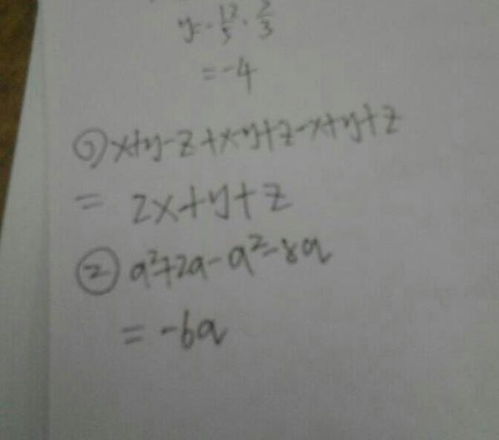 y=-12/5·2/3
=-4
① x+y-z+x-y+z-x+y+z
= 2x+y+z
② a²+2a-a²-8a
= -6a